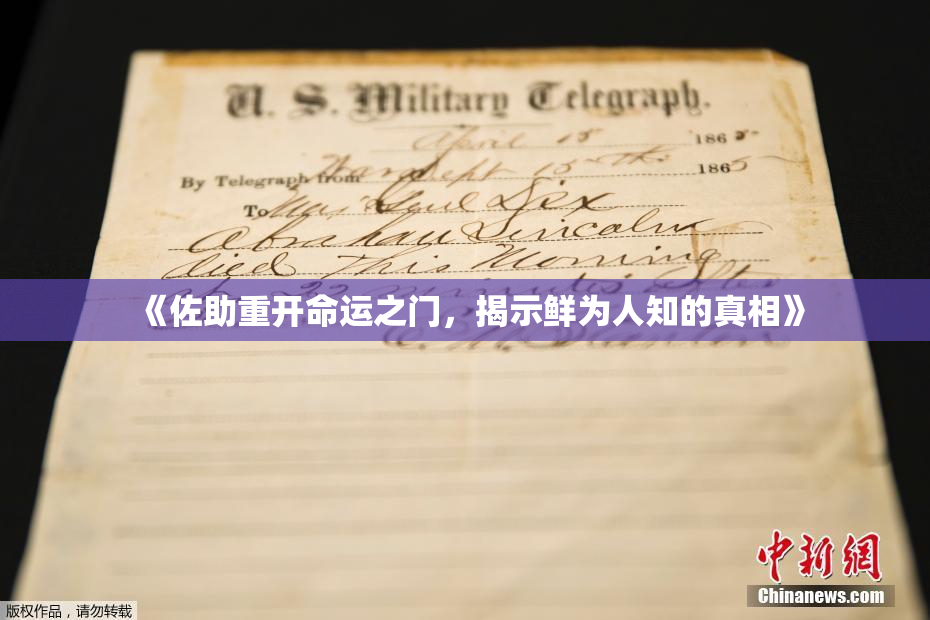 U. S. Military Telegraph.
April 15 1865
By Telegraph from War Dept 15th 1865
To Maj Genl Dix
Abraham Lincoln
died This Morning
at 22 minutes after
《佐助重开命运之门，揭示鲜为人知的真相》
E. M. Stanton
中新网
Chinanews.com
版权作品，请勿转载